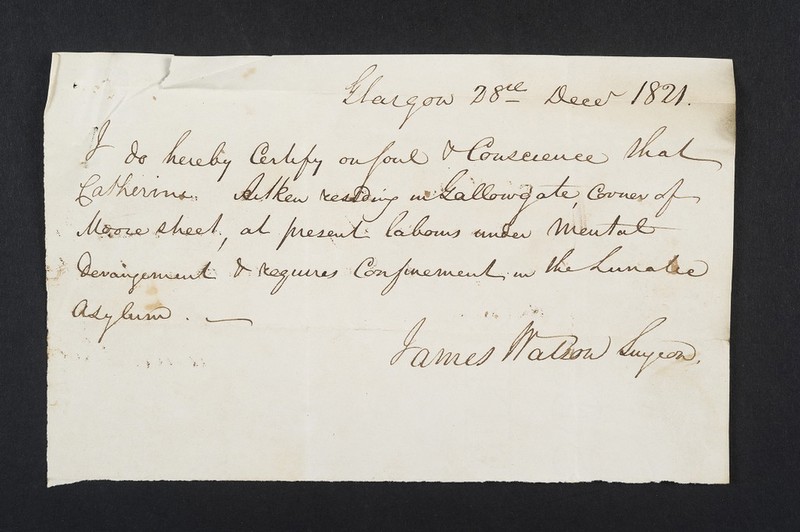 Glasgow 28th Decr 1821.
I do hereby Certify on Soul & Conscience that
Catherine Aitken residing in Gallowgate, Corner of
Moore street, at present labours under Mental
derangement & requires Confinement in the Lunatic
Asylum. —
James Watson Surgeon.